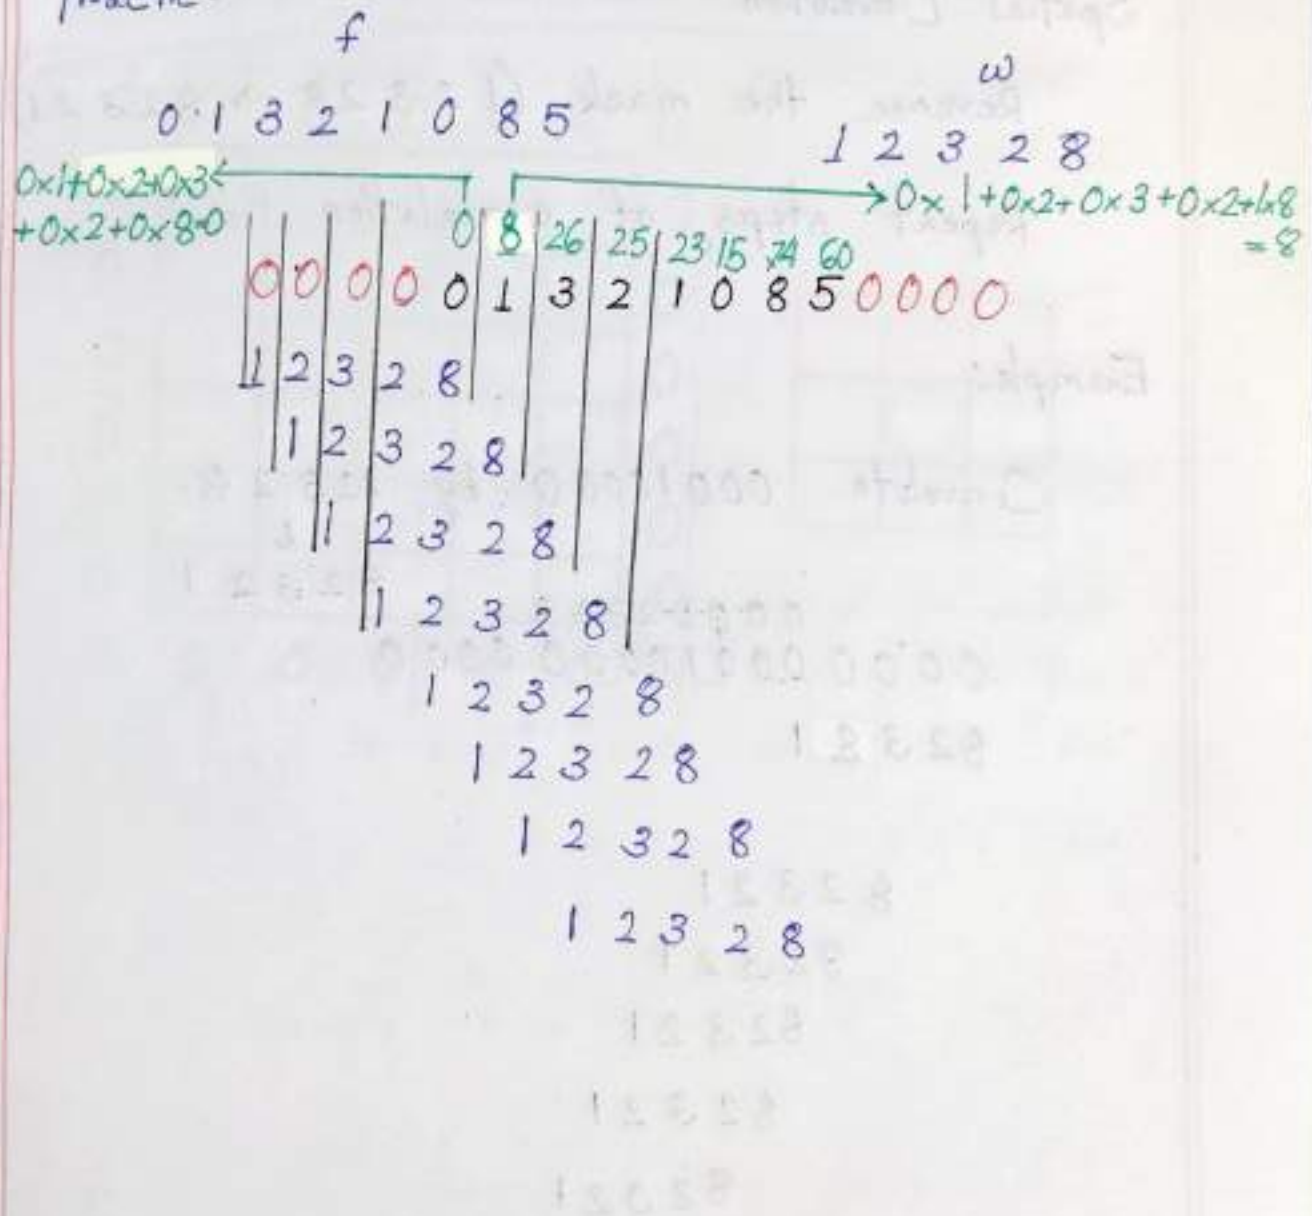 f
w
0.1 3 2 1 0 8 5
1 2 3 2 8
0x1+0x2+0x3
+0x2+0x8=0
0x1+0x2+0x3+0x2+1x8
=8
0 8 26 25 23 15 74 60
0 0 0 0 0 1 3 2 1 0 8 5 0 0 0 0
1 2 3 2 8
1 2 3 2 8
1 2 3 2 8
1 2 3 2 8
1 2 3 2 8
1 2 3 2 8
1 2 3 2 8
1 2 3 2 8